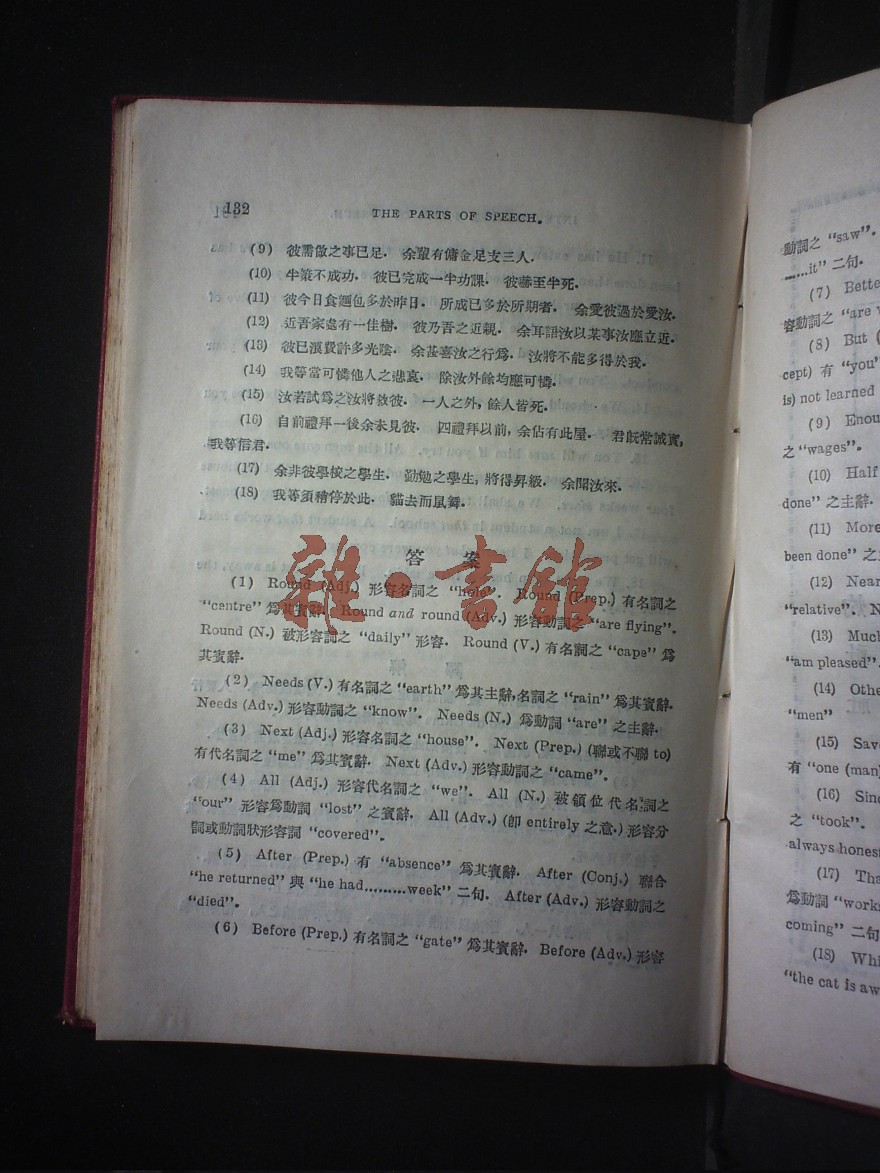 132
THE PARTS OF SPEECH.
(9) 彼需做之事已足. 余輩有傭金足支三人.
(10) 半策不成功. 彼已完成一半功課. 彼赫至半死.
(11) 彼今日食麵包多於昨日. 所成已多於所期者. 余愛彼過於愛汝.
(12) 近吾家處有一佳樹. 彼乃吾之近親. 余耳語汝以某事汝應立近.
(13) 彼已浪費許多光陰. 余甚喜汝之行爲. 汝將不能多得於我.
(14) 我等當可憐他人之悲哀. 除汝外餘均應可憐.
(15) 汝若試爲之汝將救彼. 一人之外, 餘人皆死.
(16) 自前禮拜一後余未見彼. 四禮拜以前, 余佔有此屋. 君旣常誠實,
我等信君.
(17) 余非彼學校之學生. 勤勉之學生, 將得昇級. 余聞汝來.
(18) 我等須稍停於此. 貓去而鼠舞.
答案
(1) Round (Adj.) 形容名詞之 “hole”. Round (Prep.) 有名詞之
“centre” 爲其賓辭. Round and round (Adv.) 形容動詞之 “are flying”.
Round (N.) 被形容詞之 “daily” 形容. Round (V.) 有名詞之 “cape” 爲
其賓辭.
(2) Needs (V.) 有名詞之 “earth” 爲其主辭, 名詞之 “rain” 爲其賓辭.
Needs (Adv.) 形容動詞之 “know”. Needs (N.) 爲動詞 “are” 之主辭.
(3) Next (Adj.) 形容名詞之 “house”. Next (Prep.) (聯或不聯 to)
有代名詞之 “me” 爲其賓辭. Next (Adv.) 形容動詞之 “came”.
(4) All (Adj.) 形容代名詞之 “we”. All (N.) 被領位代名詞之
“our” 形容爲動詞 “lost” 之賓辭. All (Adv.) (卽 entirely 之意.) 形容分
詞或動詞狀形容詞 “covered”.
(5) After (Prep.) 有 “absence” 爲其賓辭. After (Conj.) 聯合
“he returned” 與 “he had.........week” 二句. After (Adv.) 形容動詞之
“died”.
(6) Before (Prep.) 有名詞之 “gate” 爲其賓辭. Before (Adv.) 形容
雜·書館
動詞之 “saw”.
......it” 二句.
(7) Bette
容動詞之 “are
(8) But (
cept) 有 “you”
is) not learned
(9) Enou
之 “wages”.
(10) Half
done” 之主辭.
(11) More
been done” 之
(12) Near
“relative”. N
(13) Much
“am pleased”.
(14) Othe
“men”
(15) Save
有 “one (man)
(16) Sinc
之 “took”.
always honest
(17) Tha
爲動詞 “works
coming” 二句
(18) Whi
“the cat is aw